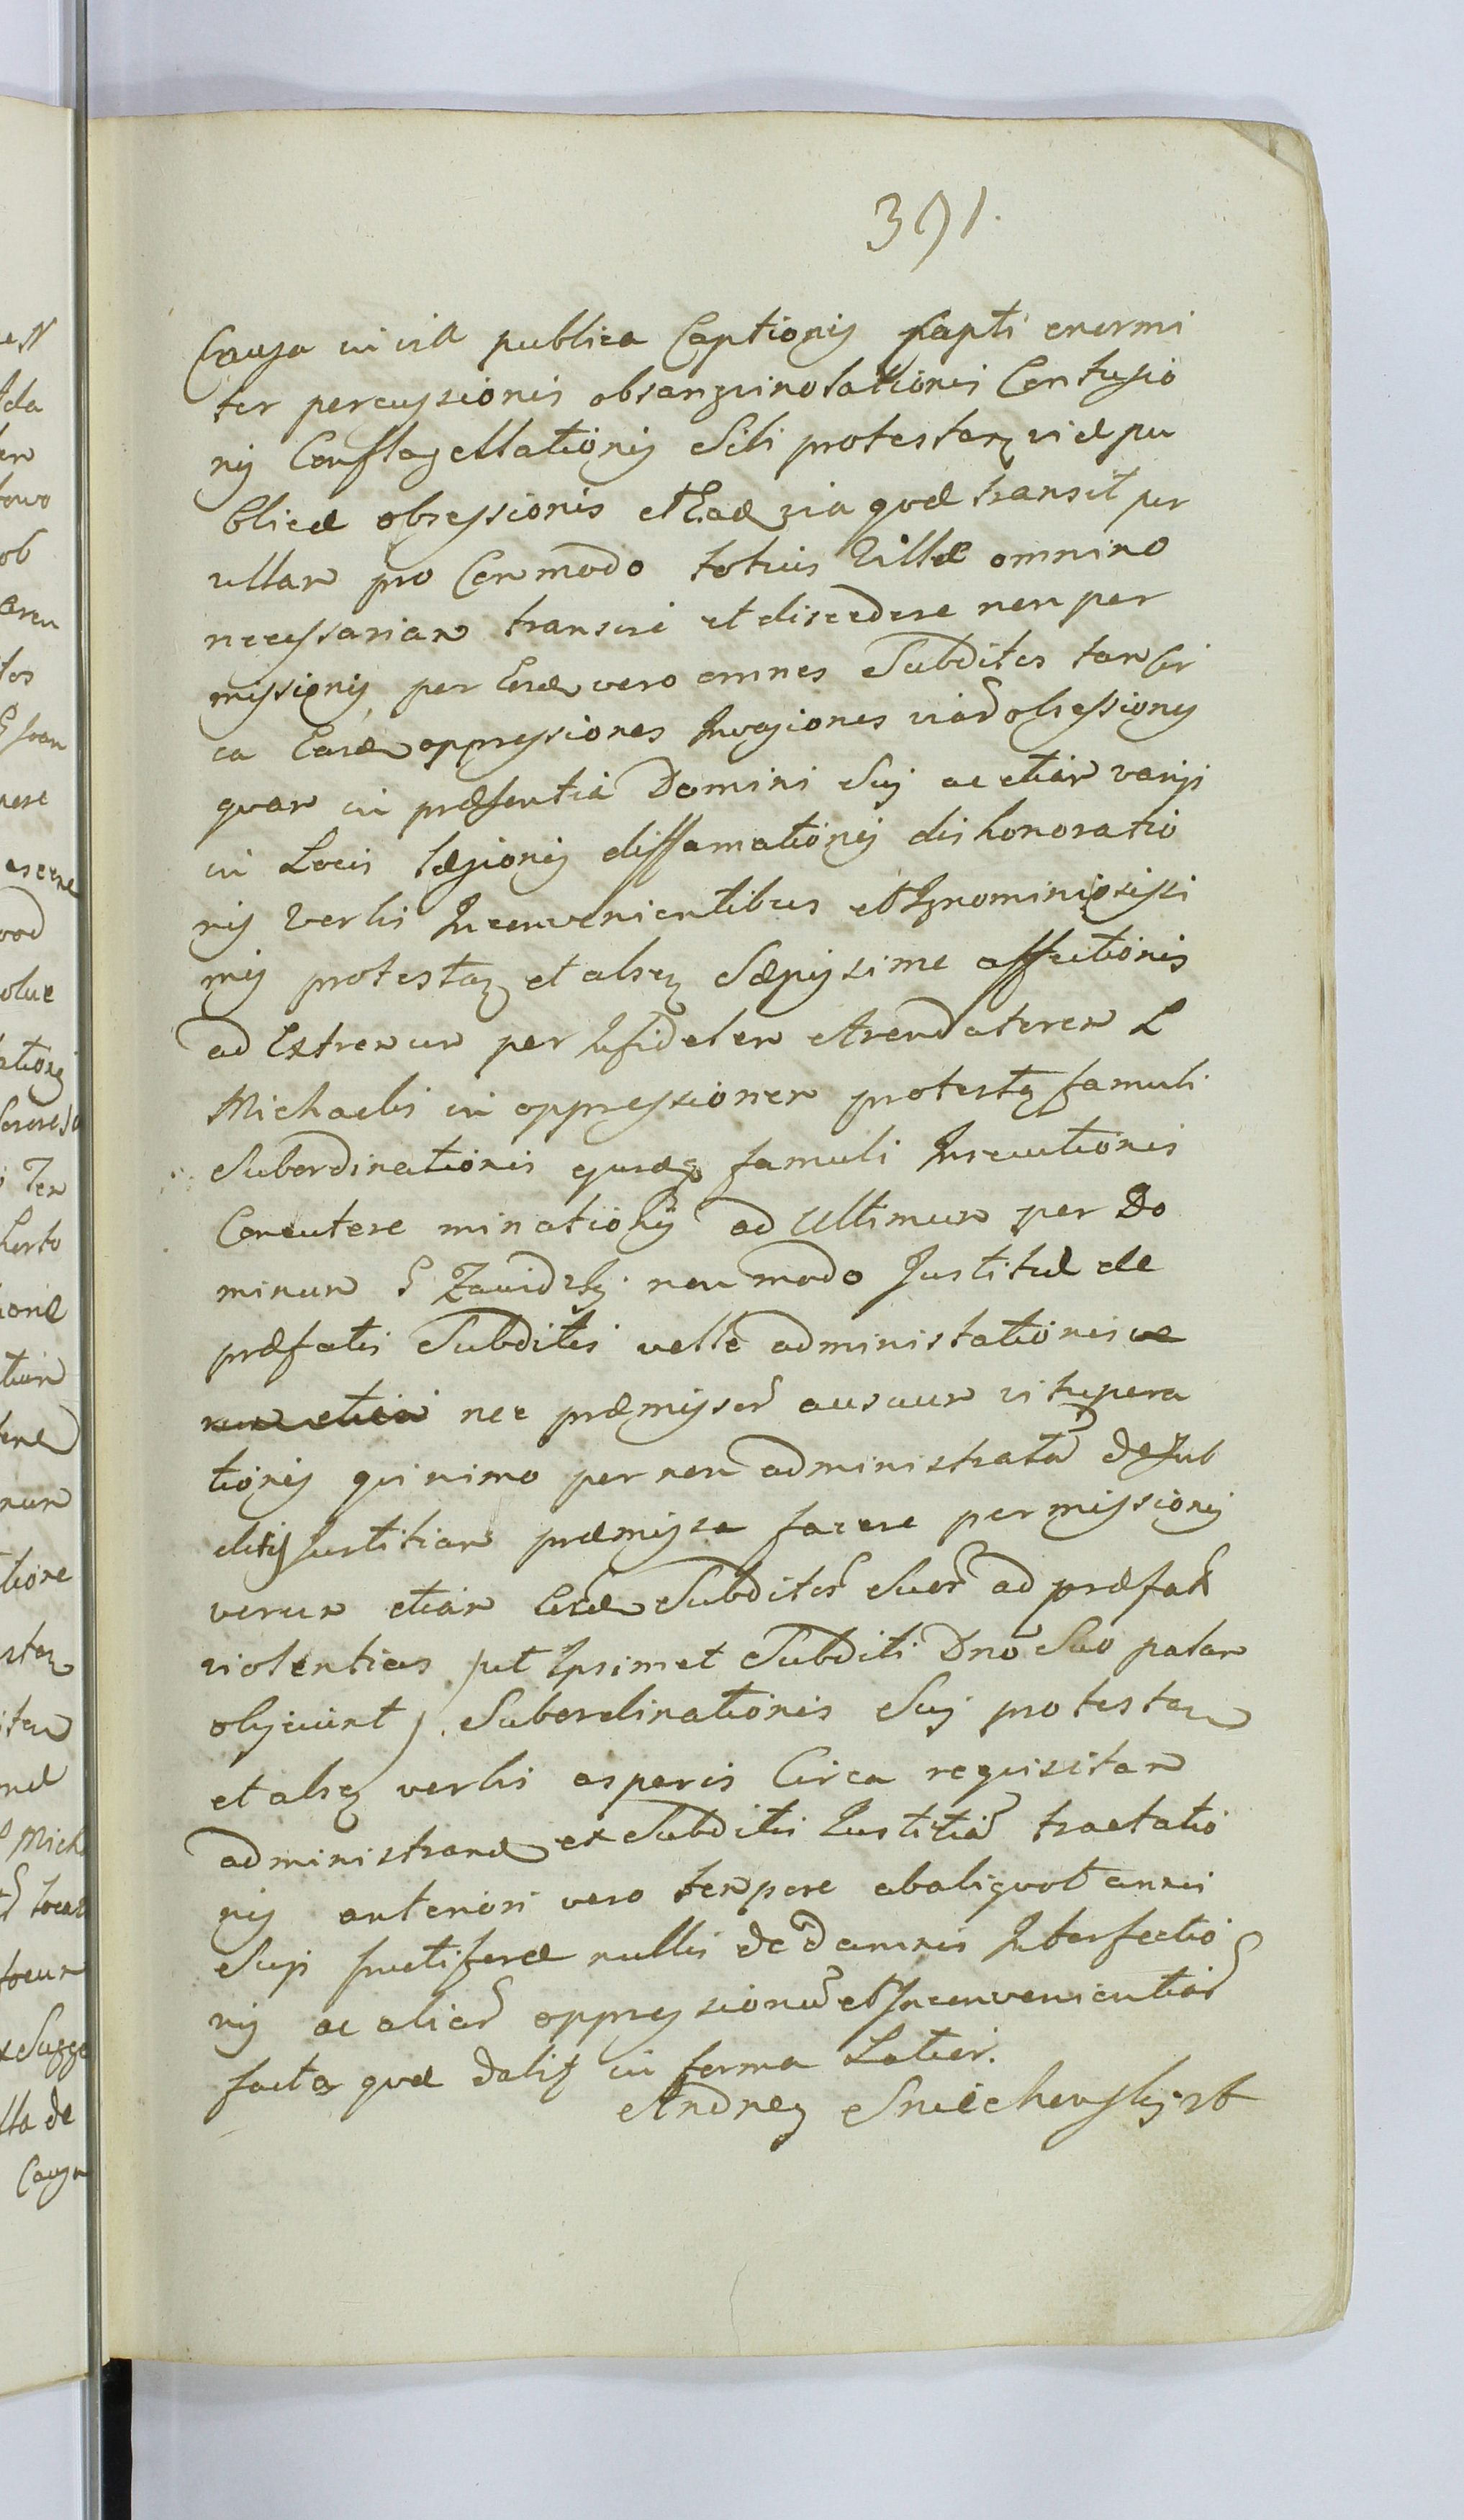 391.
Causa in via publica Captionis Capti enormi
ter percussionis obsanguinolationis Contusio
nis Conflagellationis Sibi protestanꝫ viæ pu
blicæ obsessionis et Eadem via quæ transit per
villam pro Commodo totius Villæ omnino
necessariam transire et discedere non per
missionis, per vero omnes Subditos tam Cir
ca oppressiones Invasiones viarum obsessiones
quam in præsentia Domini Sui ac etiam varijs
in Locis læsionis diffamationis dishonoratio
nis Verbis Inconvenientibus et Ignominiosissi
mis protestanꝫ et alsꝫ Sæpissime affectionis
ad Extremum per Infidelem Arendatorem L
Michaelis in oppressionem protestꝫ famuli
Subordinationis ejusdemqꝫ famuli Insecutionis
Concutere minationis ad Ultimum per Do
minum G Zawidzki non modo Justitiæ de
præfatis Subditis velle administrationis ve
rum etiam nec præmissor ausuum vitupera
tionis quinimo per non administratam de Sub
ditis Justitiam præmissa facere permissionis
verum etiam Subditor Suor ad præfatas
violentias /ut Ipsimet Subditi Dno Suo palam
objiciunt/. Subordinationis Sui protestan
et alsꝫ verbis asperis Circa requisitam
administrand ex Subditis Justitiam tractatio
nis anteriori vero tempore ab aliquot annis
Scapi fructiferæ nullis de damnis Interfectio
nis ac aliar oppressionum et Inconvenientiar
facta quæ dabit in forma Latior.
Andrzej Sniechowski st